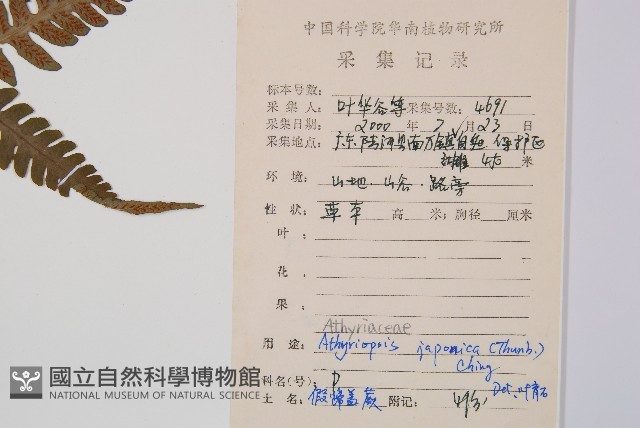 中国科学院华南植物研究所
采集记录
标本号数:
采集人: 叶华谷等 采集号数: 4691
采集日期: 2000 年 7 月 23 日
采集地点: 广东 陆河县南万镇自然保护区
海拔 450 米
环境: 山地·山谷·路旁
性状: 草本 高 米; 胸径 厘米
叶:
花
果:
Athyriaceae
用途: Athyriopsis japonica (Thunb.)
Ching
科名(号): P
Det. 叶育石
土名: 假蹄盖蕨 附记:
國立自然科學博物館
NATIONAL MUSEUM OF NATURAL SCIENCE